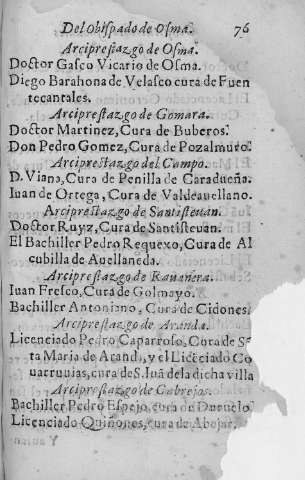 Del Obispado de Osma. 76
Arciprestazgo de Osma.
Doctor Gasco Vicario de Osma.
Diego Barahona de Velasco cura de Fuen
tecantales.
Arciprestazgo de Gomara.
Doctor Martinez, Cura de Buberos.
Don Pedro Gomez, Cura de Pozalmuro.
Arciprestazgo del Campo.
D. Viana, Cura de Penilla de Caradueña.
Iuan de Ortega, Cura de Valdeauellano.
Arciprestazgo de Santisteuan.
Doctor Ruyz, Cura de Santisteuan.
El Bachiller Pedro Requexo, Cura de Al
cubilla de Auellaneda.
Arciprestazgo de Rauanera.
Iuan Fresco, Cura de Golmayo.
Bachiller Antoniano, Cura de Cidones.
Arciprestazgo de Aranda.
Licenciado Pedro Caparroso, Cura de Sã
ta Maria de Arandi, y el Licẽciado Co
uarruuias, cura de S. Iuã de la dicha villa
Arciprestazgo de Cabrejas.
Bachiller Pedro Espejo, cura de Duruelo.
Licenciado Quiñones, cura de Abejar.